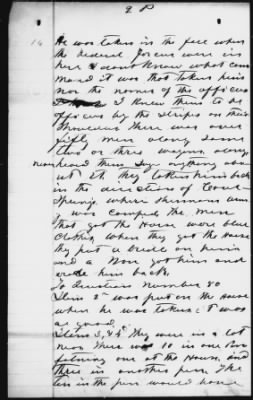 2 P
14 He was taken in the fall when
the Federal forces were in
here I dont know what com
mand it was that taken him
nor the names of the officers
I knew them to be
officers by the stripes on their
shoulders There was over
fifty men along some
two or three wagons along
never heard them say anything abo
ut it they taken him back
in the direction of Cave
Springs where Shermans arm
y was camped the men
that got the Horse wore blue
clothes when they got the Horse
they put a bridle on him
and a Man got him and
rode him back.
To Question Number 80
Item 2nd was put on the House
when he was taken & was
as good
Items 3, & 4th They were in a lot
near There was 10 in one Pen
fatning one at the House, and
three in another pen. The
ten in the pen would have